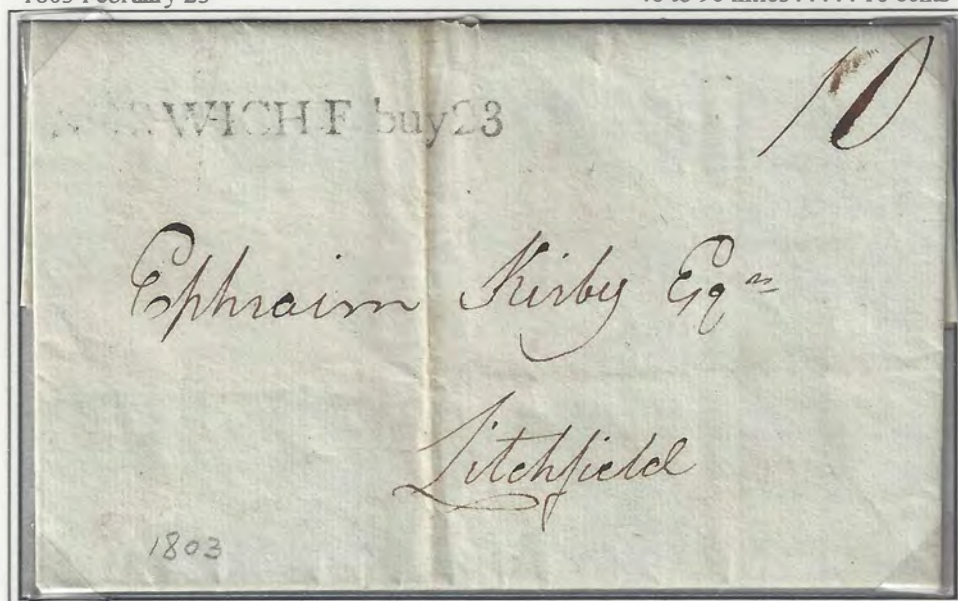 10
WICH F buy 23
Ephraim Kirby Esqr
Litchfield
1803